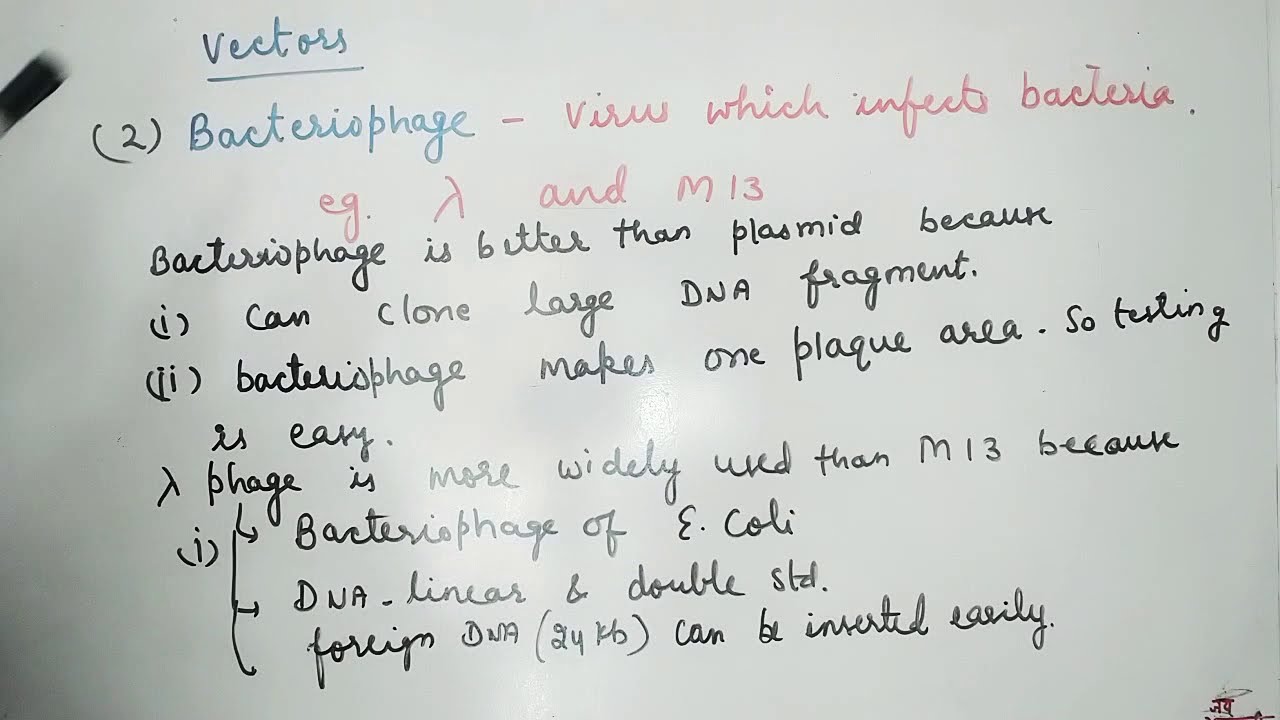 Vectors
(2) Bacteriophage - Virus which infects bacteria.
eg. λ and M13
Bacteriophage is better than plasmid because
(i) Can clone large DNA fragment.
(ii) bacteriophage makes one plaque area. So testing
is easy.
λ phage is more widely used than M13 because
(i) ↳ Bacteriophage of E. Coli
→ DNA - linear & double std.
foreign DNA (24 kb) can be inserted easily.
जय